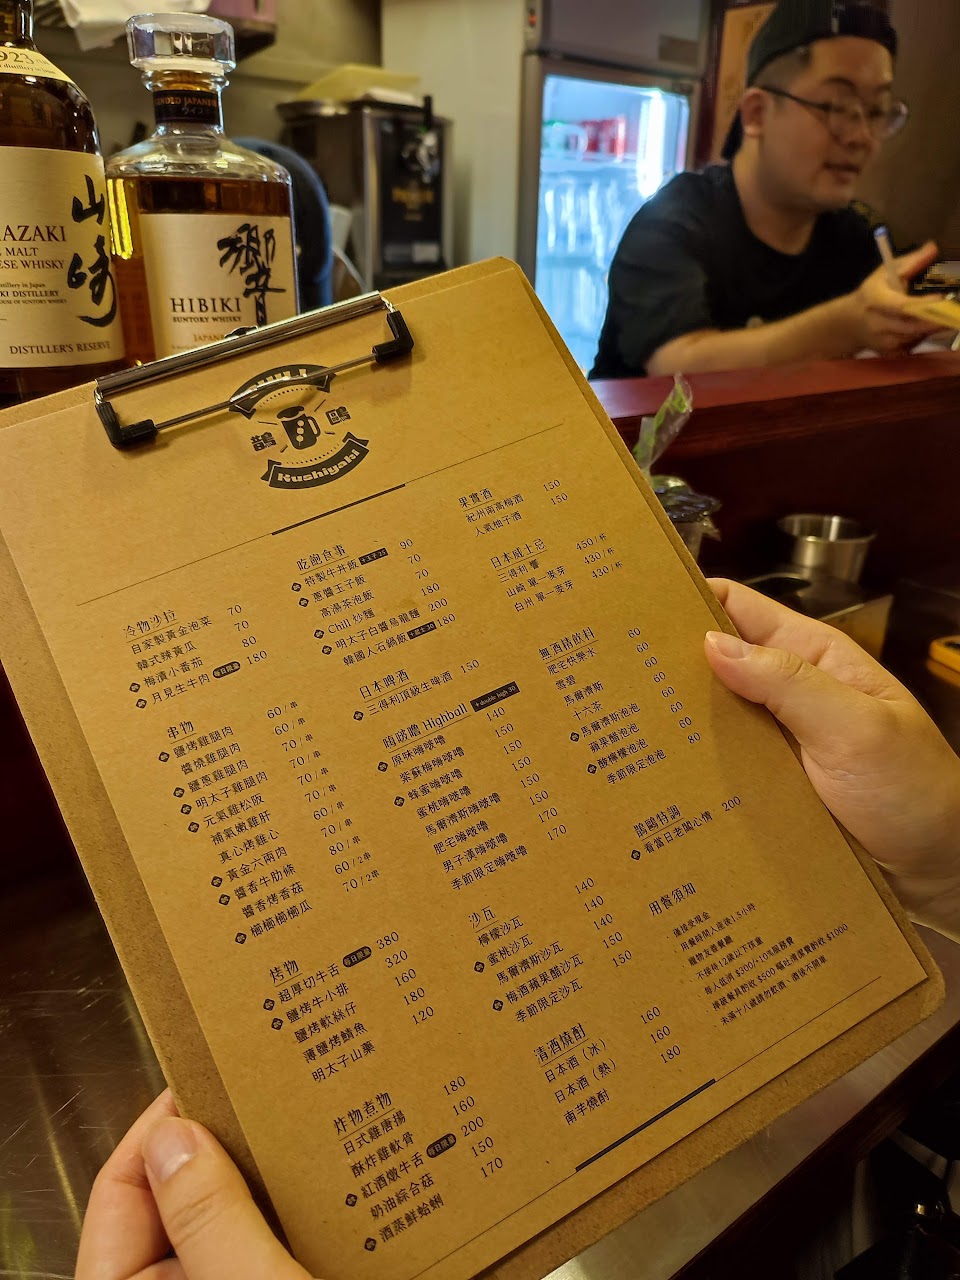 1923
山崎
MALT
WHISKY
DISTILLER'S RESERVE
響
HIBIKI
SUNTORY WHISKY
Kushiyaki
冷物沙拉
自家製黃金泡菜 70
韓式辣黃瓜 70
梅漬小番茄 80
月見生牛肉 每日限量 180
串物
鹽烤雞腿肉 60/串
醬燒雞腿肉 60/串
鹽蔥雞腿肉 70/串
明太子雞腿肉 70/串
元氣雞松阪 70/串
補氣嫩雞肝 60/串
真心烤雞心 70/串
黃金六兩肉 80/串
醬香牛肋條
醬香烤香菇 60/2串
櫛櫛櫛櫛瓜 70/2串
烤物
超厚切牛舌 每日限量 380
鹽烤牛小排 320
鹽烤軟絲仔 160
薄鹽烤鯖魚 180
明太子山藥 120
炸物煮物
日式雞唐揚 180
酥炸雞軟骨 160
紅酒燉牛舌 每日限量 200
奶油綜合菇 150
酒蒸鮮蛤蜊 170
吃飽食事
特製牛丼飯 90
蔥醬玉子飯 70
高湯茶泡飯 70
Chill 炒麵 180
明太子白醬烏龍麵 200
韓國人石鍋飯 180
日本啤酒
三得利頂級生啤酒 150
嗨啵膽 Highball +double high 50
原味嗨啵嚕 140
紫蘇梅嗨啵嚕 150
蜂蜜嗨啵嚕 150
蜜桃嗨啵嚕 150
馬爾濟斯嗨啵嚕 150
肥宅嗨啵嚕 150
男子漢嗨啵嚕 170
季節限定嗨啵嚕 170
沙瓦
檸檬沙瓦 140
蜜桃沙瓦 140
馬爾濟斯沙瓦 140
梅酒蘋果醋沙瓦 150
季節限定沙瓦 150
清酒燒酎
日本酒（冰） 160
日本酒（熱） 160
南芋燒酎 180
果實酒
紀州南高梅酒 150
人氣柚子酒 150
日本威士忌
三得利 響 450/杯
山崎 單一麥芽 430/杯
白州 單一麥芽 430/杯
無酒精飲料
肥宅快樂水 60
雪碧 60
馬爾濟斯 60
十六茶 60
馬爾濟斯泡泡 60
蘋果醋泡泡 60
酸檸檬泡泡 60
季節限定泡泡 80
看當日老闆心情 200
用餐須知
僅接受現金
用餐時間入座後1.5小時
寵物友善餐廳
不接待12歲以下孩童
每人低消 $300/+10%服務費
摔破餐具酌收 $500 嘔吐清潔費酌收 $1000
未滿十八歲請勿飲酒、酒後不開車